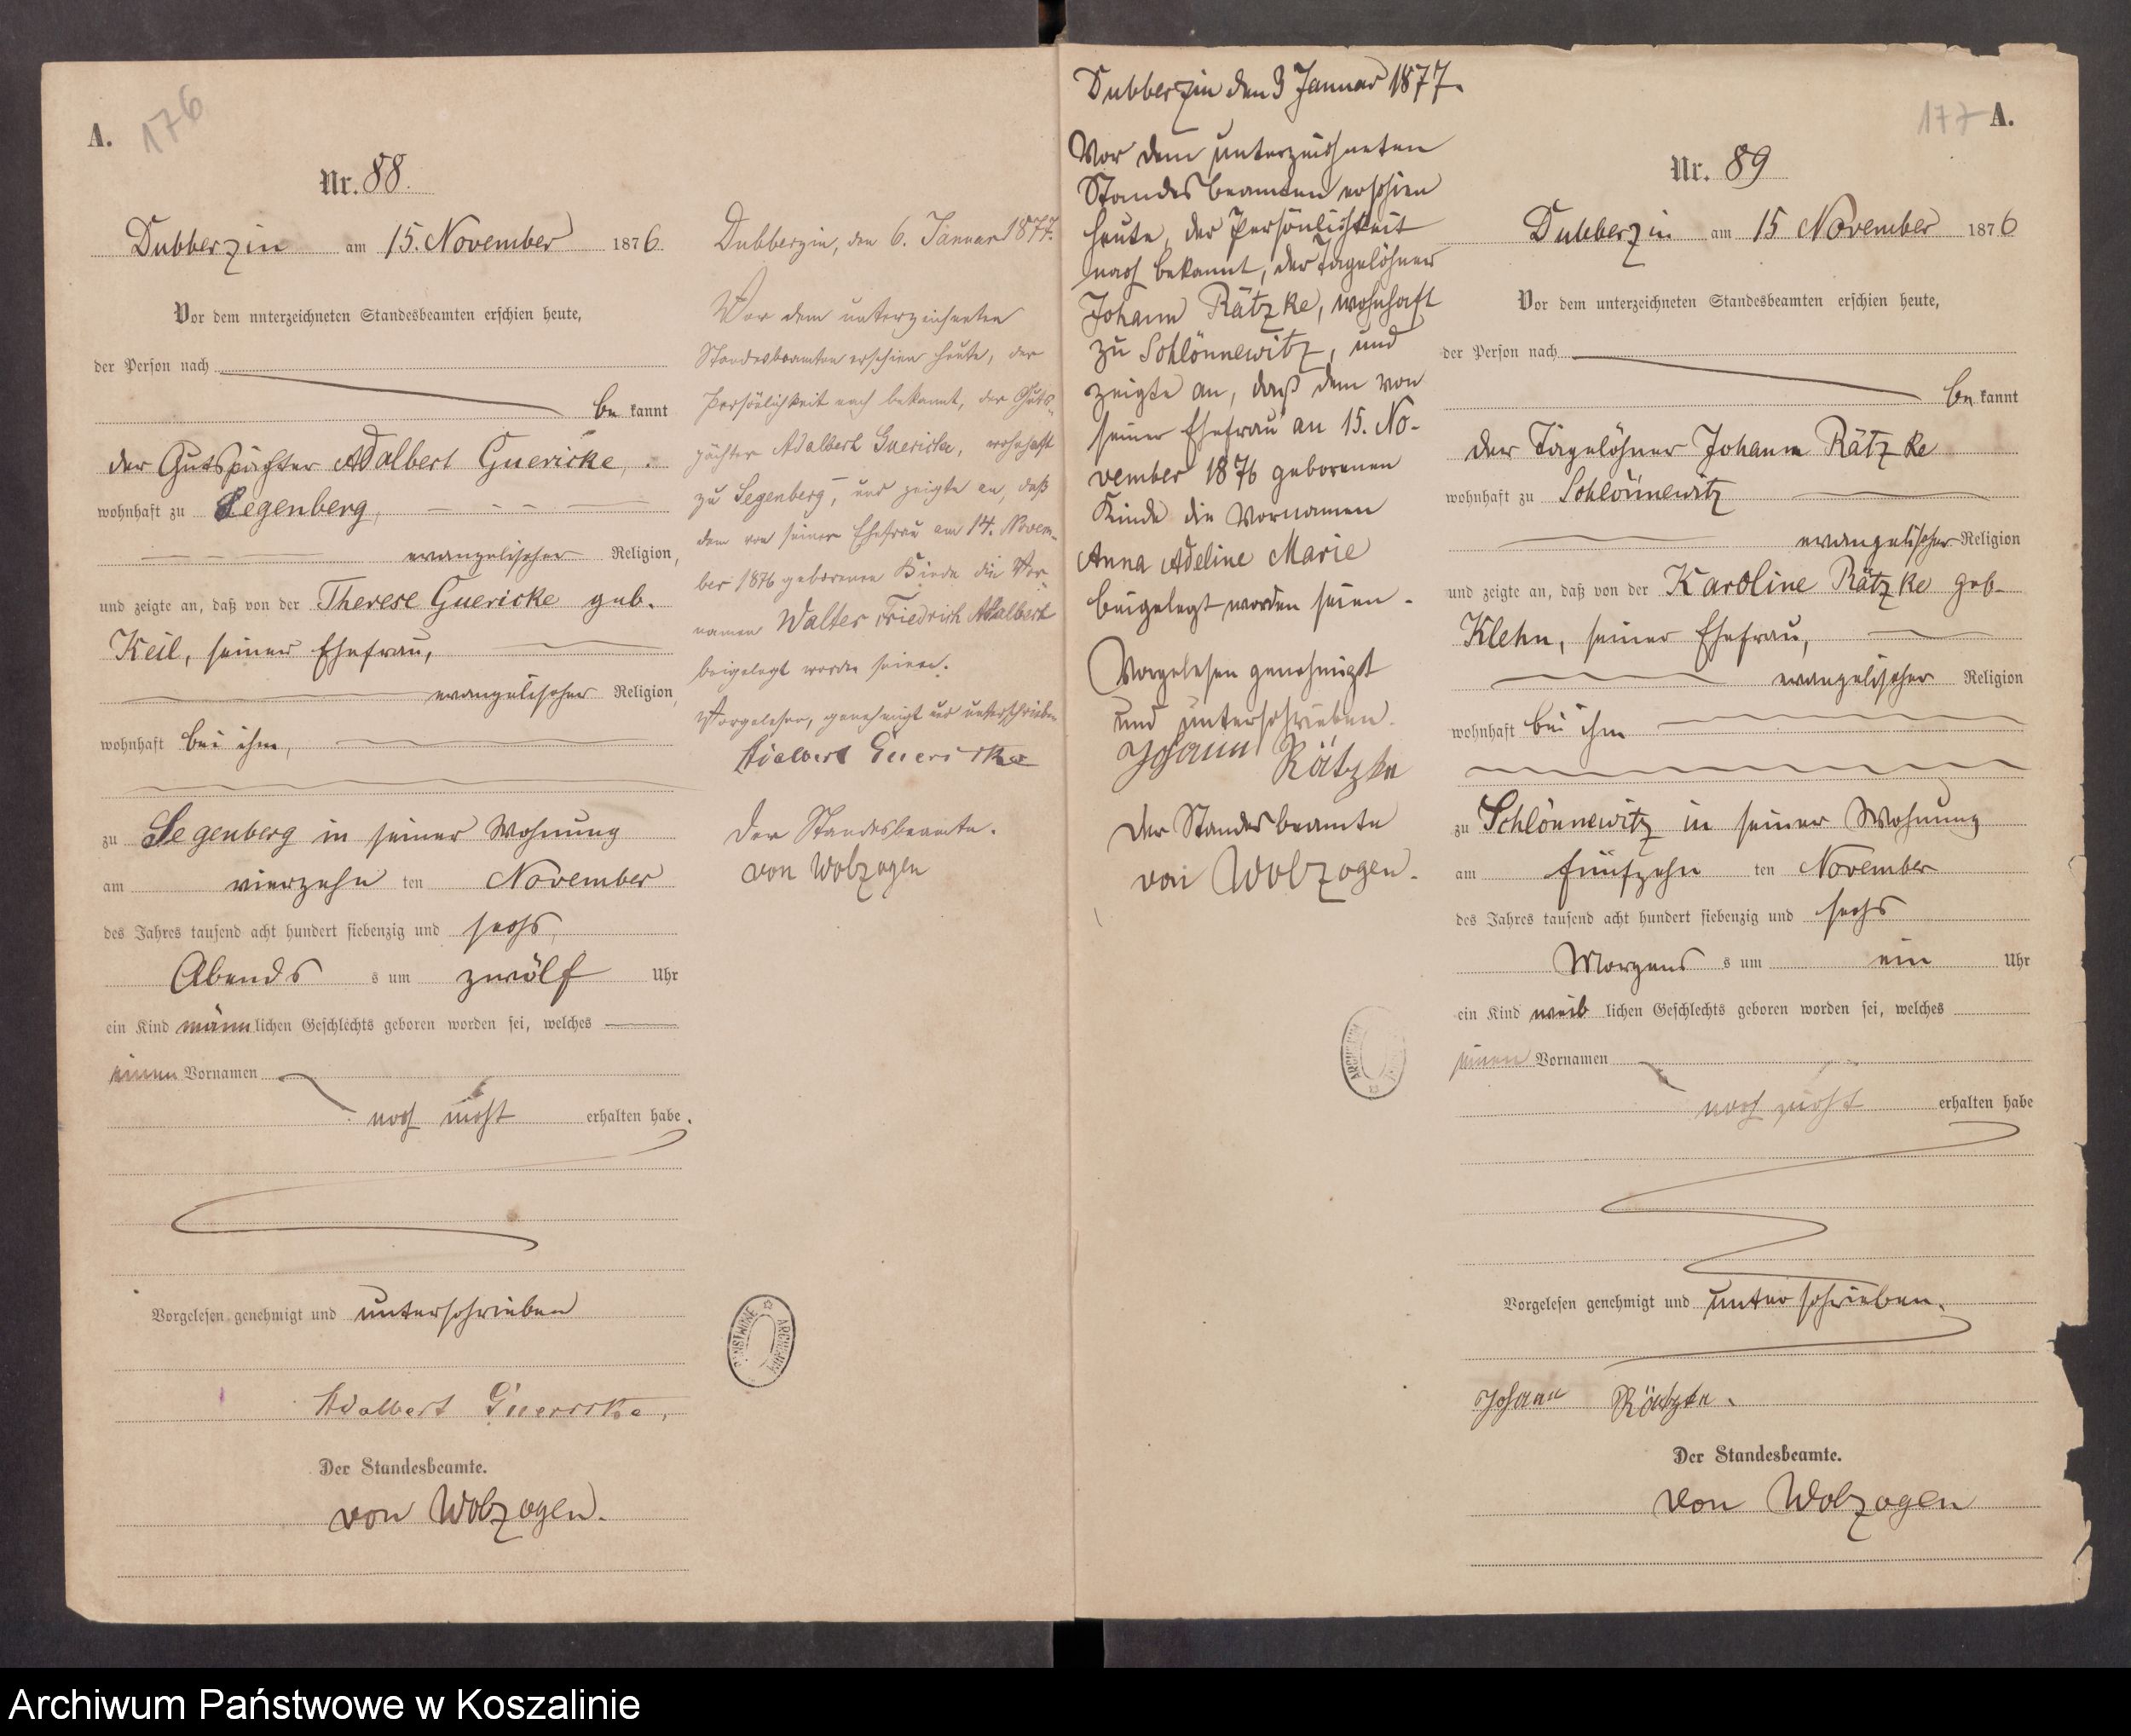 A.
176
Nr. 88.
Dubberzin am 15. November 1876.
Vor dem unterzeichneten Standesbeamten erschien heute,
der Person nach
be kannt
der Gutspächter Adalbert Guericke,
wohnhaft zu Segenberg,
evangelischer Religion,
und zeigte an, daß von der Therese Guericke geb.
Keil, seiner Ehefrau,
evangelischer Religion,
wohnhaft bei ihm,
zu Segenberg in seiner Wohnung
am vierzehn ten November
des Jahres tausend acht hundert siebenzig und sechs,
Abends s um zwölf Uhr
ein Kind männlichen Geschlechts geboren worden sei, welches
einen Vornamen
noch nicht erhalten habe.
Vorgelesen genehmigt und unterschrieben
Adalbert Guericke,
Der Standesbeamte.
von Wolzogen.
Dubberzin, den 6. Januar 1877.
Vor dem unterzeichneten
Standesbeamten erschien heute, der
Persönlichkeit nach bekannt, der Guts-
pächter Adalbert Guericke, wohnhaft
zu Segenberg, und zeigte an, daß
dem von seiner Ehefrau am 14. Novem-
ber 1876 geborenen Kinde die Vor-
namen Walter Friedrich Adalbert
beigelegt worden seien.
Vorgelesen, genehmigt und unterschrieben
Adalbert Guericke
Der Standesbeamte.
von Wolzogen
PAŃSTWOWE ARCHIWUM
Dubberzin den 3 Januar 1877.
Vor dem unterzeichneten
Standesbeamten erschien
heute, der Persönlichkeit
nach bekannt, der Tagelöhner
Johann Rätzke, wohnhaft
zu Schlönnewitz, und
zeigte an, daß dem von
seiner Ehefrau an 15. No-
vember 1876 geborenen
Kinde die Vornamen
Anna Adeline Marie
beigelegt worden seien.
Vorgelesen genehmigt
und unterschrieben.
Johann Rätzke
Der Standesbeamte
von Wolzogen.
ARCHIWUM
177 A.
Nr. 89
Dubberzin am 15 November 1876
Vor dem unterzeichneten Standesbeamten erschien heute,
der Person nach
be kannt
der Tagelöhner Johann Rätzke
wohnhaft zu Schlönnewitz
evangelischer Religion
und zeigte an, daß von der Karoline Rätzke geb.
Klehn, seiner Ehefrau,
evangelischer Religion
wohnhaft bei ihm
zu Schlönnewitz in seiner Wohnung
am fünfzehn ten November
des Jahres tausend acht hundert siebenzig und sechs
Morgens s um ein Uhr
ein Kind weib lichen Geschlechts geboren worden sei, welches
einen Vornamen
noch nicht erhalten habe
Vorgelesen genehmigt und unterschrieben.
Johann Rätzke.
Der Standesbeamte.
von Wolzogen
Archiwum Państwowe w Koszalinie